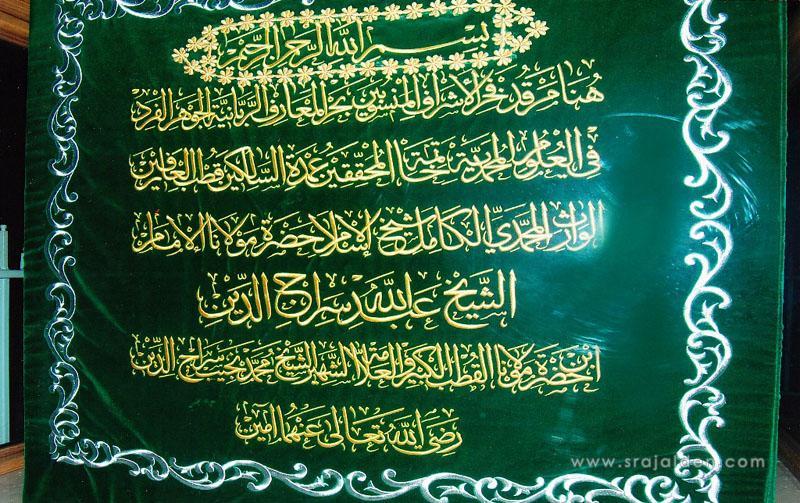 بسم الله الرحمن الرحيم
هنا مرقد فخر الأشراف المنسوبين بحر المعارف الربانية الجوهر الفرد
في العلوم المحمدية خاتمة المحققين عمدة السالكين قطب العارفين
الوارث المحمدي الكامل شيخ الإسلام حضرة مولانا الإمام
الشيخ عبد الله سراج الدين
ابن حضرة مولانا القطب الكبير والعلامة الشهير الشيخ محمد نجيب سراج الدين
رضي الله تعالى عنهما آمين
www.srajalden.com